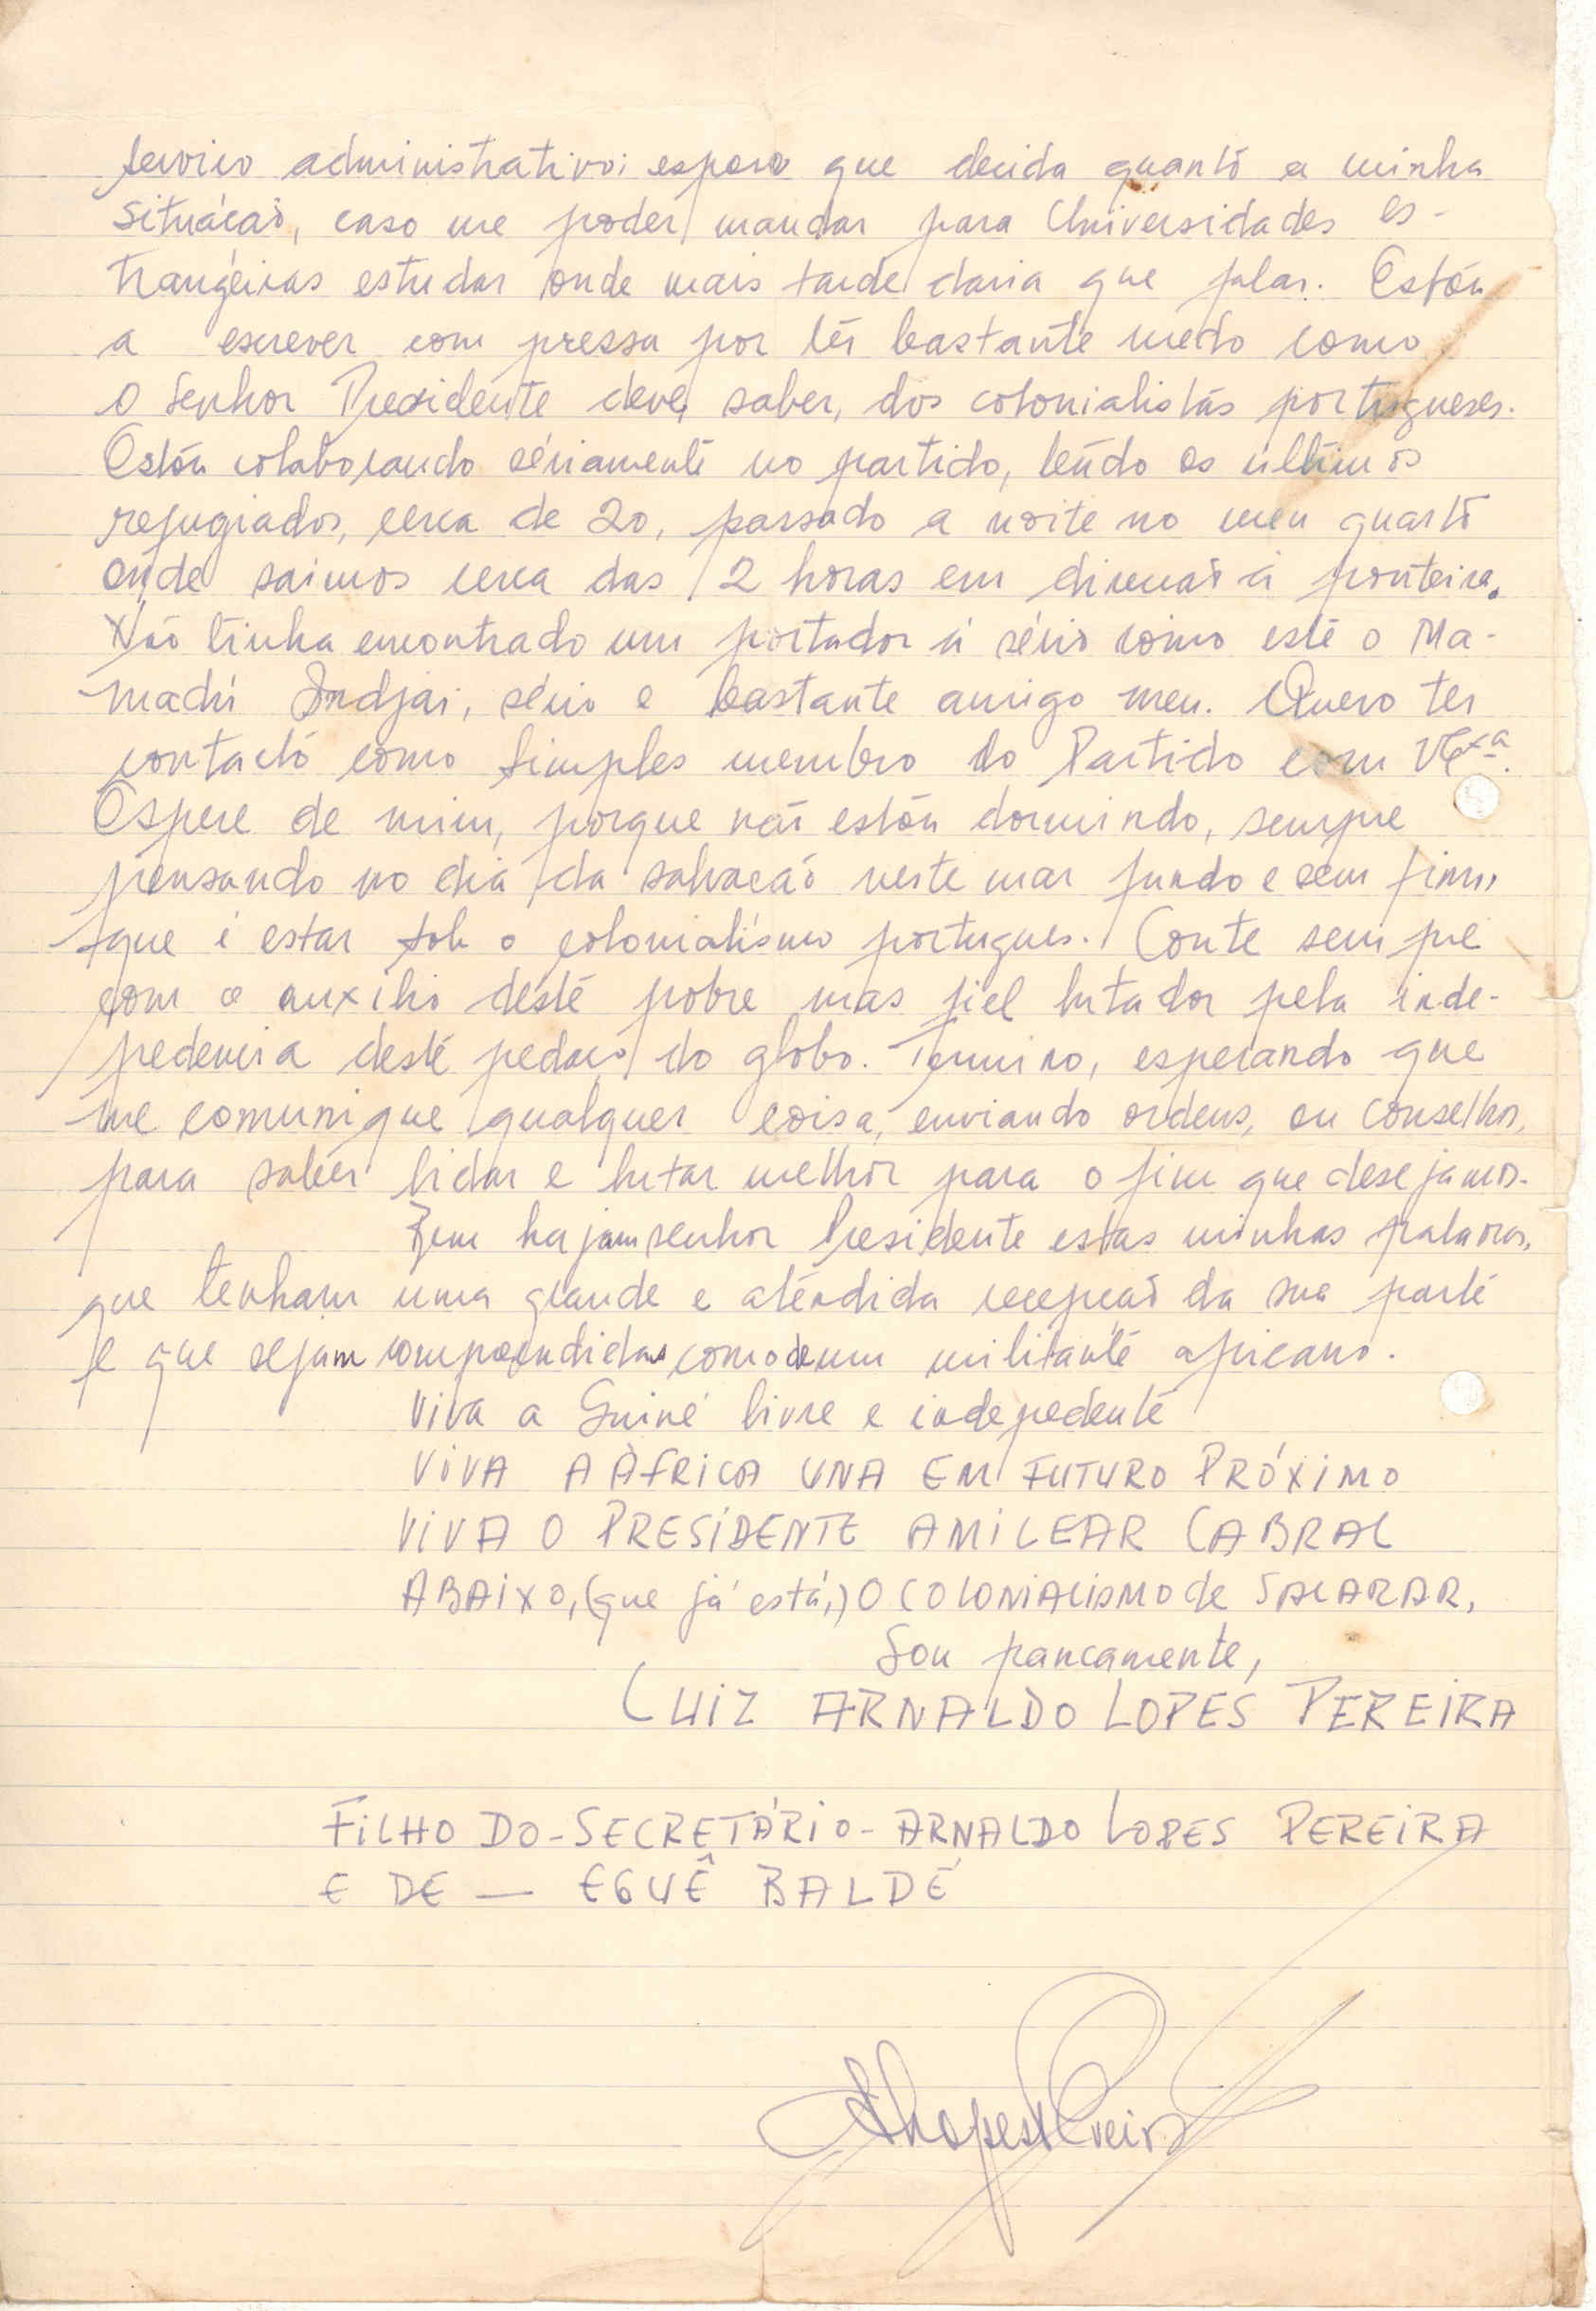 servico administrativo; espero que decida quanto a minha
situácaõ, caso me poder mandar para Universidades es-
trangeiras estudar onde mais tarde daria que falar. Estou
a escrever com pressa por ter bastante medo como
o Senhor Presidente deve saber, dos colonialistas portugueses.
Estou colaborando sériamente no partido, tendo os ultimos
refugiados, cerca de 20, passado a noite no meu quarto
onde saimos cerca das 2 horas em direcaõ á fronteira.
Não tinha encontrado um portador sério como este o Ma-
madú Indjai, sério e bastante amigo meu. Quero ter
contacto como simples membro do Partido com VExª.
Espere de mim, porque não estou dormindo, sempre
pensando no dia da salvacaõ neste mar fundo e sem fim,
que é estar sob o colonialismo portugues. Conte sempre
com o auxilio deste pobre mas fiel lutador pela inde-
pedencia deste pedaco do globo. Termino, esperando que
me comunique qualquer coisa, enviando ordens, ou conselhos,
para saber lidar e lutar melhor para o fim que desejamos.
Bem hajam senhor Presidente estas minhas palavras,
que tenham uma grande e aténdida recepcaõ da sua parte
e que sejam compreendidas como de um militante africano.
Viva a Guiné livre e indepedente
VIVA A ÀFRICA UNA EM FUTURO PRÓXIMO
VIVA O PRESIDENTE AMILCAR CABRAL
ABAIXO, (que já está,) O COLONIALISMO de SALAZAR,
Sou francamente,
LUIZ ARNALDO LOPES PEREIRA
FILHO DO-SECRETÁRIO-ARNALDO LOPES PEREIRA
E DE — EGUÊ BALDÉ
ALopesPereira